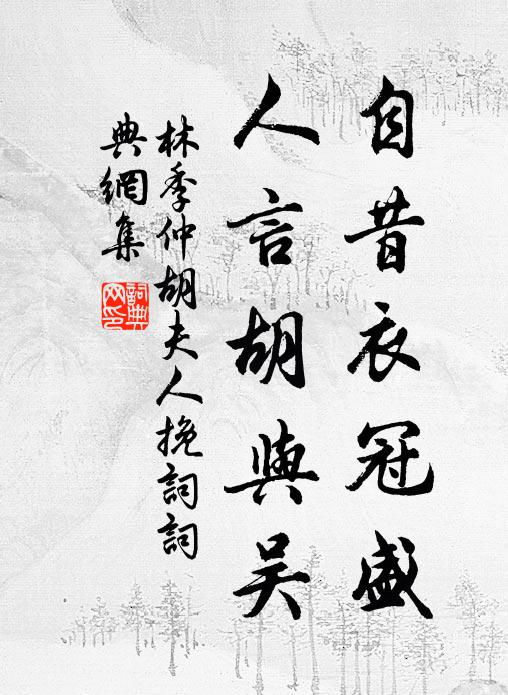 自昔衣冠盛
人言胡與吴
林季仲胡夫人挽詞詞
典網集
詞典
网印